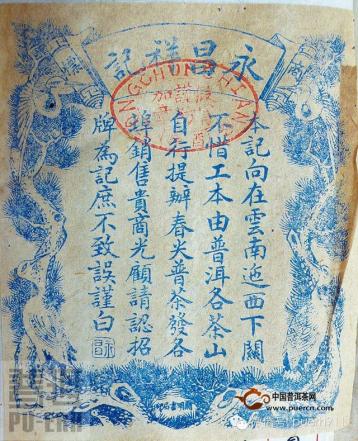 永昌祥記
本記向在雲南迤西下關
不惜工本由普洱各茶山
自行提辦春尖普茶發各
埠銷售貴商光顧請認招
牌為記庶不致誤謹白
中国普洱茶网
www.puercn.com